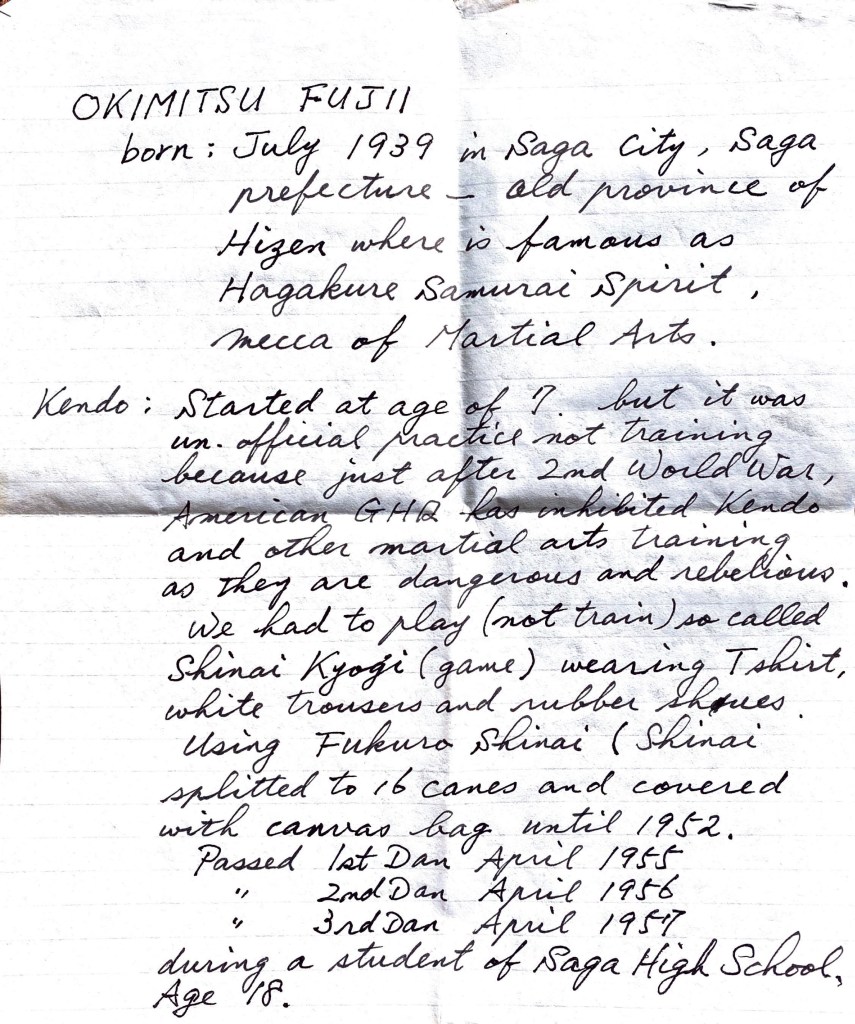 OKIMITSU FUJII
born: July 1939 in Saga City, Saga
prefecture – old province of
Hizen where is famous as
Hagakure Samurai Spirit,
mecca of Martial Arts.
Kendo: Started at age of 7 but it was
un. official practice not training
because just after 2nd World War,
American GHQ has inhibited Kendo
and other martial arts training
as they are dangerous and rebelious.
We had to play (not train) so called
Shinai Kyogi (game) wearing T shirt,
white trousers and rubber shoues.
Using Fukuro Shinai (Shinai
splitted to 16 canes and covered
with canvas bag until 1952.
Passed 1st Dan April 1955
" 2nd Dan April 1956
" 3rd Dan April 1957
during a student of Saga High School,
Age 18.